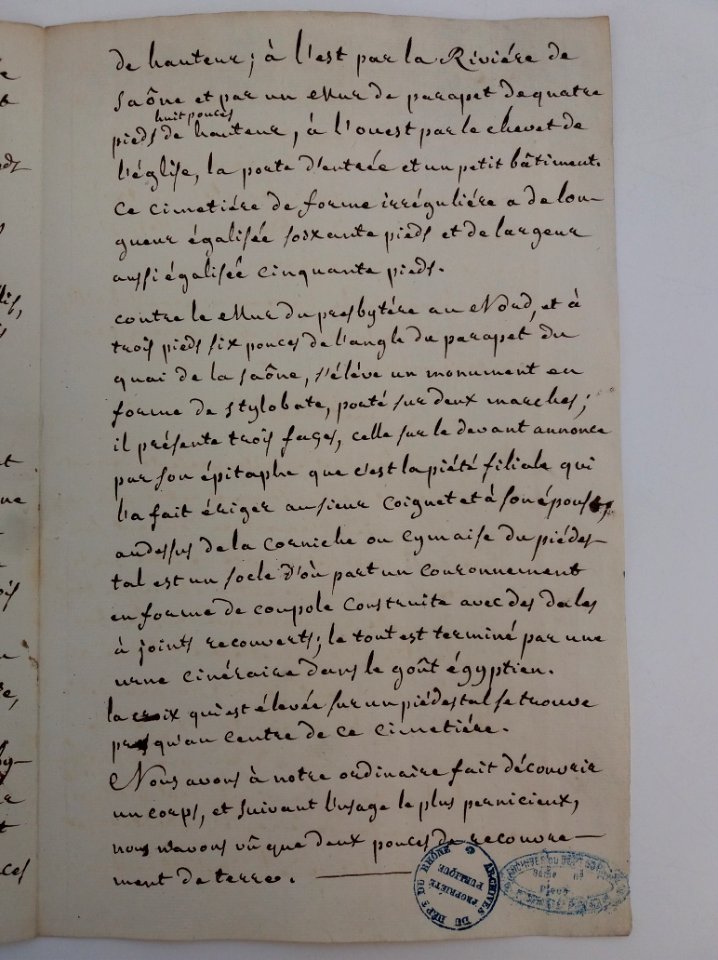 de hauteur; à l'est par la Riviére de
Saône et par un Mur de parapet de quatre
huit pouces
pieds de hauteur, à l'ouest par le chevet de
l'église, la porte d'entrée et un petit bâtiment.
Ce cimetiére de forme irréguliére a de lon-
gueur égalisée soixante pieds et de largeur
aussi égalisée cinquante pieds.
contre le Mur du presbytére au Nord, et à
trois pieds six pouces de l'angle du parapet du
quai de la Saône, s'éléve un monument en
forme de stylobate, porté sur deux marches;
il présente trois faces, celle sur le devant annonce
par son épitaphe que c'est la piété filiale qui
l'a fait ériger au sieur Coignet et à son épouse,
au dessus de la corniche ou cymaise du piédes-
tal est un socle d'où part un couronnement
en forme de coupole construite avec des dales
à joints recouverts; le tout est terminé par une
urne cinéraire dans le goût égyptien.
la croix qui est élevée sur un piédestal se trouve
presqu'au centre de ce cimetiére.
Nous avons à notre ordinaire fait découvrir
un corps, et suivant l'usage le plus pernicieux,
nous n'avons vû que deux pouces de recouvre-
ment de terre.
ARCHIVES DU DÉPT DU RHÔNE
PROPRIÉTÉ PUBLIQUE